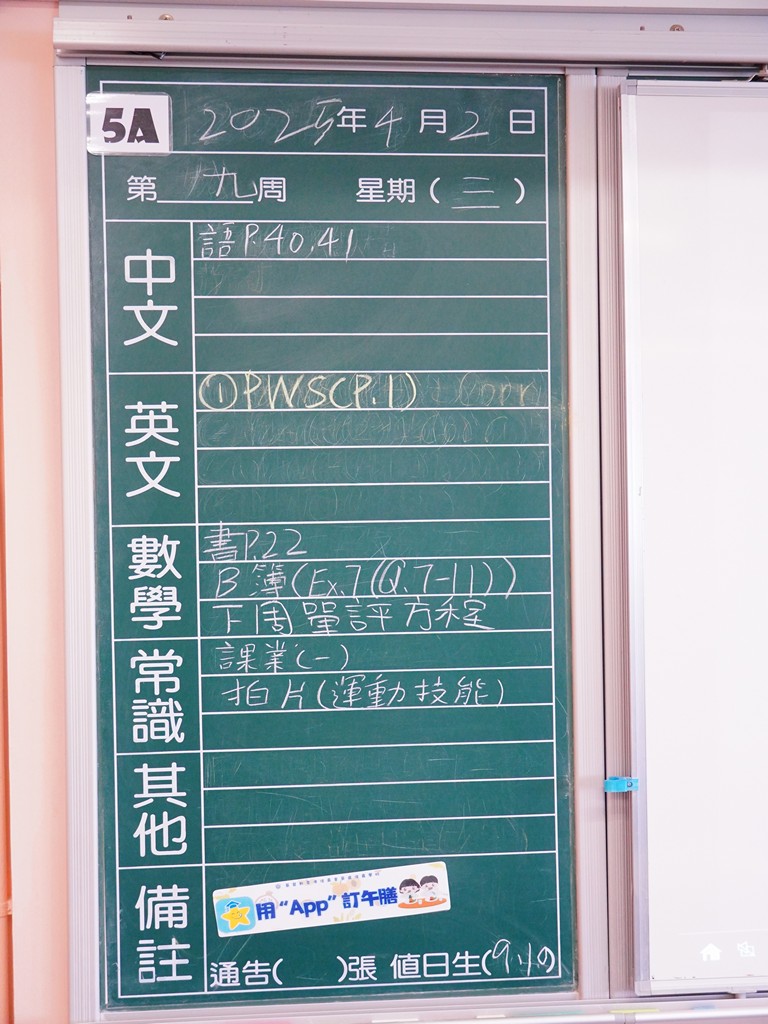 5A
2025年4月2日
第九周 星期(三)
中文
語P.40,41
英文
①PWS(P.1)
數學
書P.22
B簿(Ex.7(Q.7-11))
下周單評方程
常識
課業(一)
拍片(運動技能)
其他
備註
用“App”訂午膳
通告( )張 值日生(9,10)